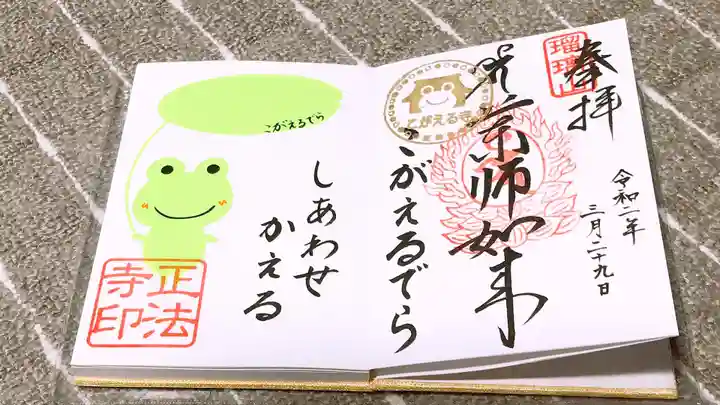 奉拝
瑠璃山
令和二年
三月二十九日
薬師如来
こがえる寺
こがえるでら
こがえるでら
しあわせ
かえる
正法
寺印